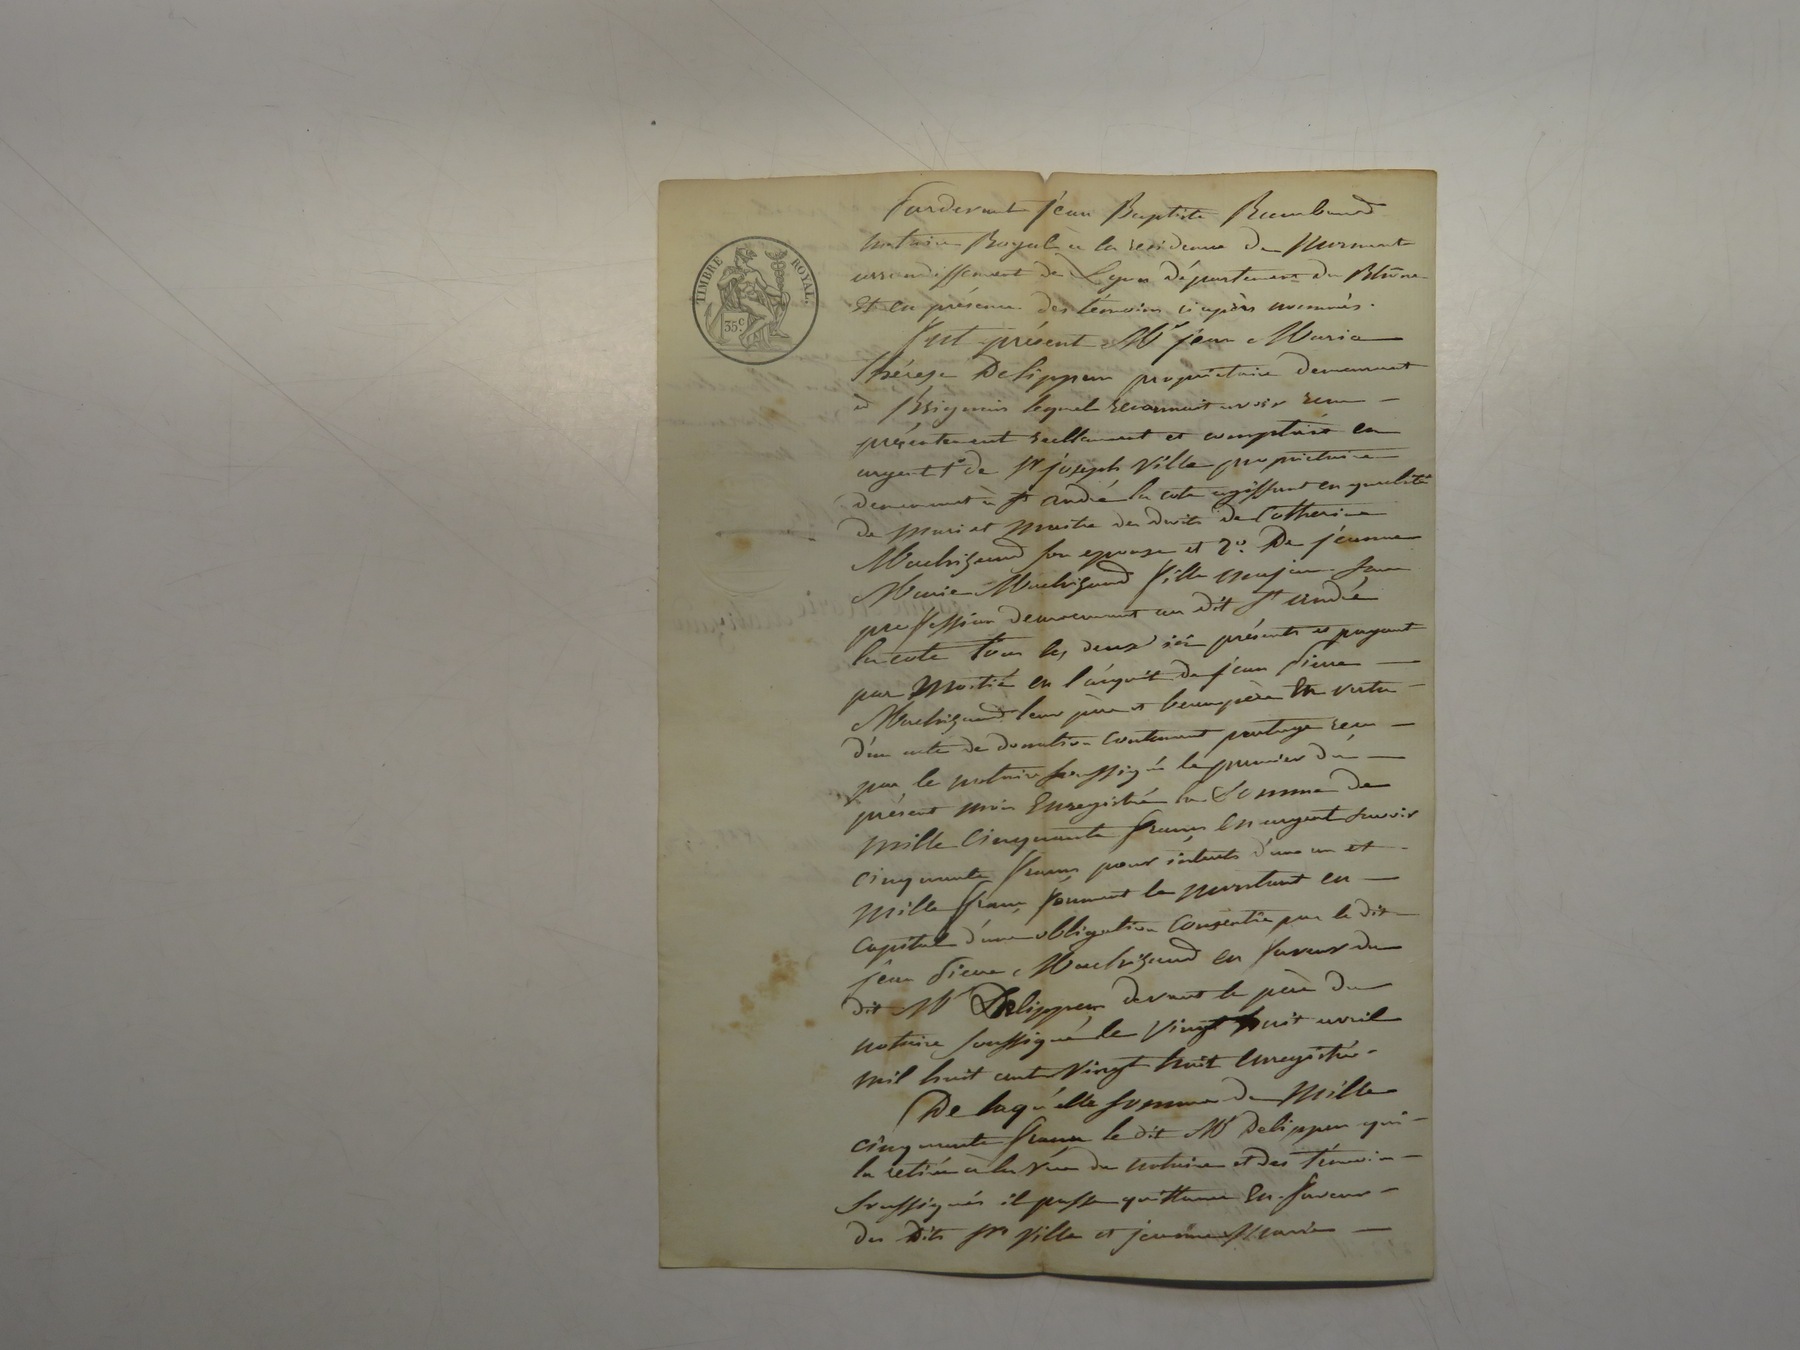 TIMBRE ROYAL.
35c
Pardevant jean Baptiste Rambaud
notaire Royal à la résidence de Mornant
arrondissement de Lyon département du Rhône
Et en présence des témoins ci après nommés.
Fut présent Mr jean Marie
Thérèse Delippen propriétaire demeurant
à Brignais lequel reconnait avoir reçu
présentement réellement et comptant en
argent 1° de Sr joseph Ville propriétaire
demeurant à St andré la cote agissant en qualité
de Mari et Maitre des droits de Catherine
Machizaud son epouse et 2° De jeanne
Marie Machizaud fille majeure sans
profession demeurant au dit St andré
la cote tous les deux ici présents et payant
par Moitié en l'acquit de jean Pierre
Machizaud leur père et beaupère En vertu
d'un acte de donation contenant partage reçu
par le notaire soussigné le premier du
présent mois Enregistré la Somme de
Mille Cinquante francs En argent savoir
cinquante francs pour intérêts d'un an et
Mille francs formant le montant en
capital d'une obligation Consentie par le dit
jean Pierre Machizaud en faveur du
dit Mr Delippen devant le père du
notaire soussigné le Vingt huit avril
mil huit cent Vingt huit Enregistré.
De laquelle somme de Mille
cinquante francs le dit Mr Delippen qui
la retirée à la Vue du notaire et des témoins
soussignés il passe quittance En faveur
des Dits Sr Ville et jeanne Marie